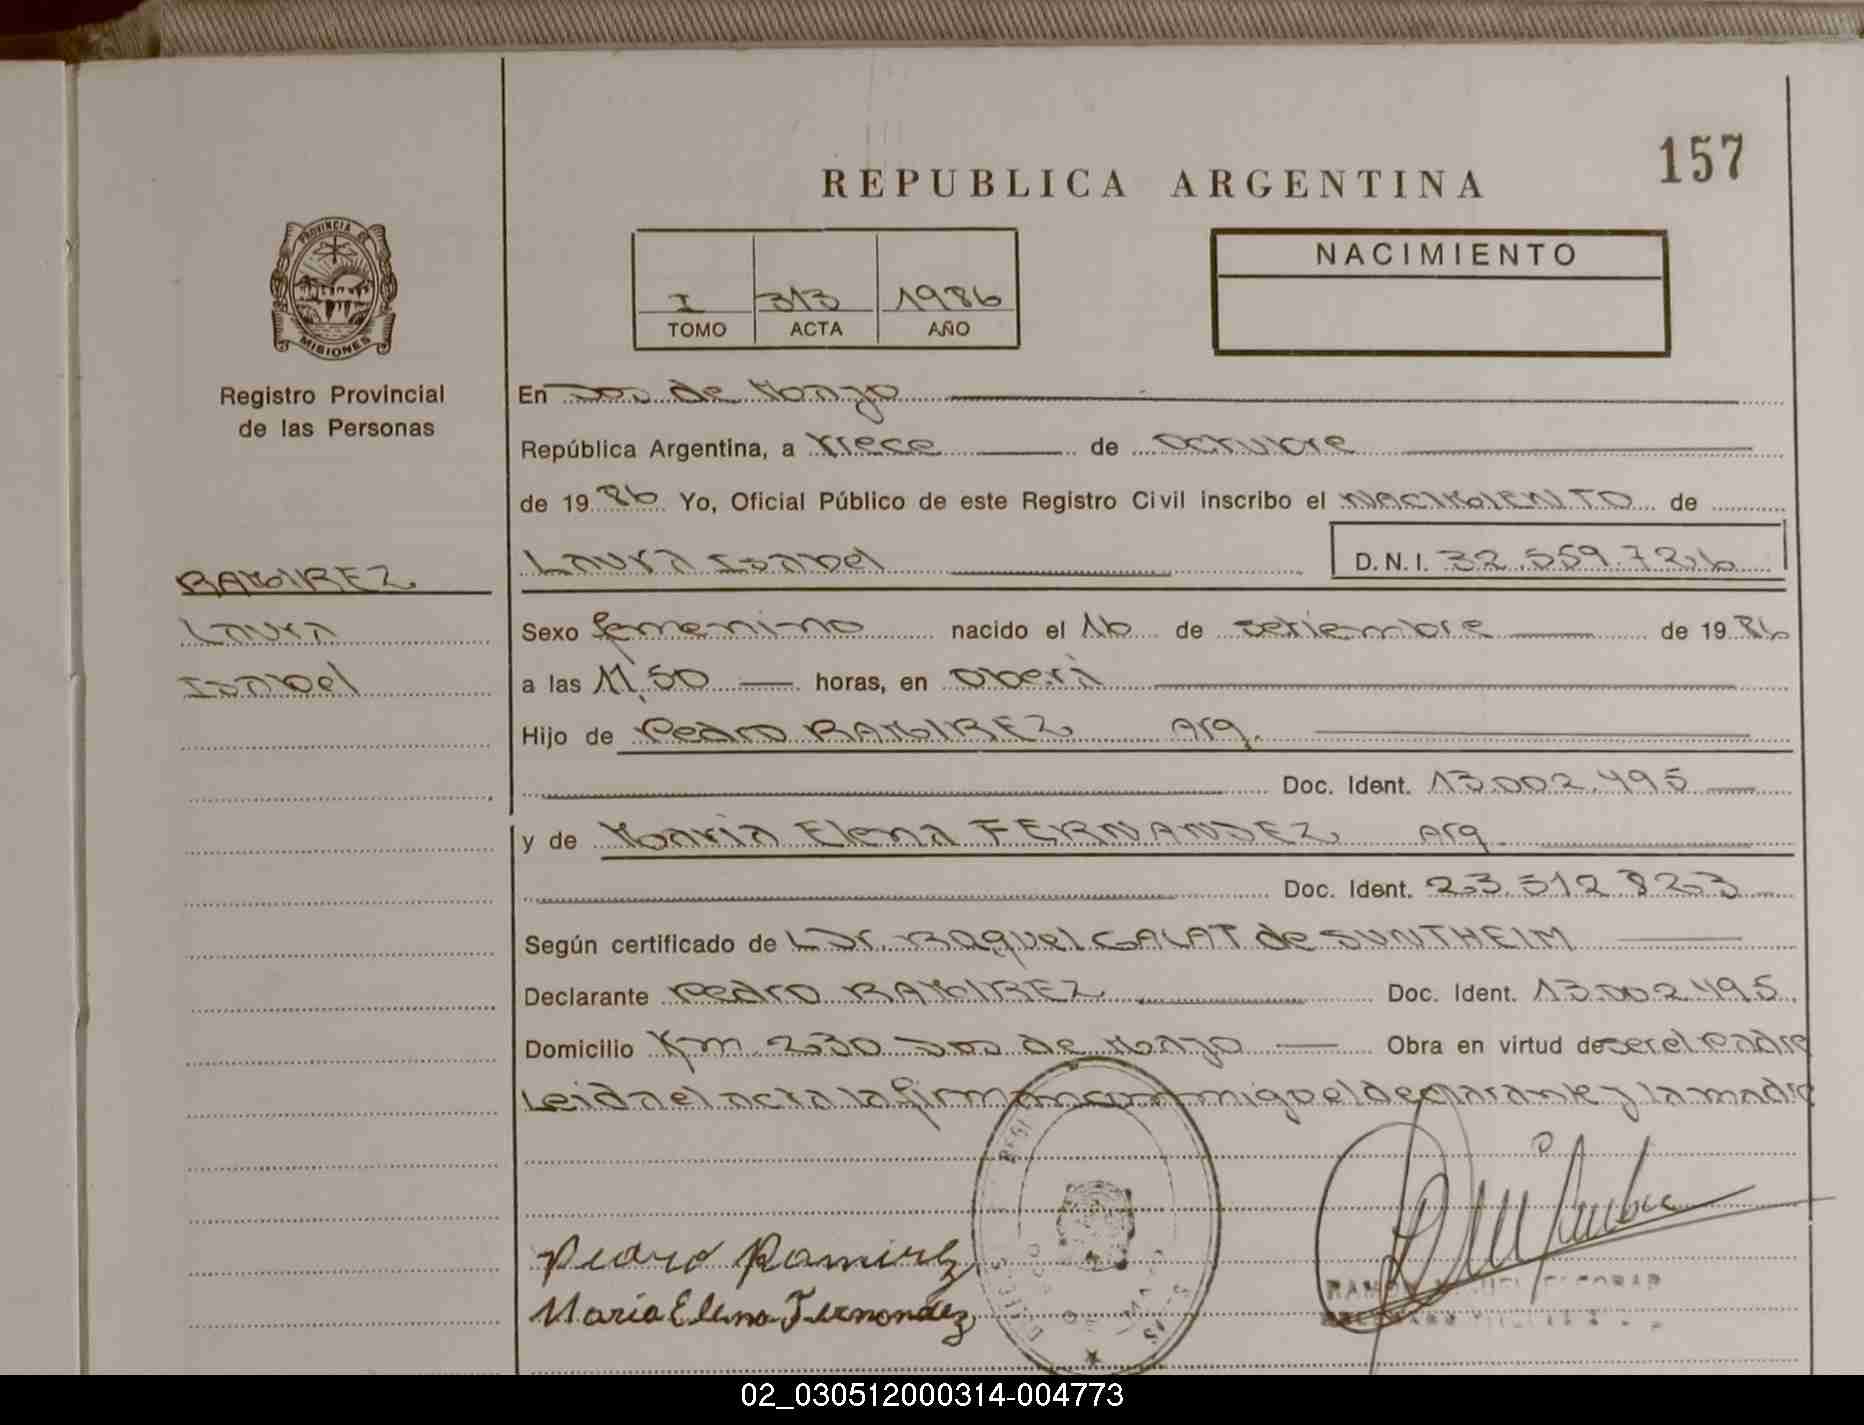 157
REPUBLICA ARGENTINA
PROVINCIA DE
MISIONES
Registro Provincial
de las Personas
I 313 1986
TOMO ACTA AÑO
NACIMIENTO
En Dos de Mayo
República Argentina, a trece de octubre
de 19 86 Yo, Oficial Público de este Registro Civil inscribo el NACIMIENTO de
Laura Isabel D.N.I. 32.559.726
RAMIREZ
Laura
Isabel
Sexo femenino nacido el 16 de setiembre de 19 86
a las 11,50 horas, en Oberá
Hijo de Pedro RAMIREZ Arg.
Doc. Ident. 13.002.495
y de Maria Elena FERNANDEZ Arg.
Doc. Ident. 23.512.823
Según certificado de Dr. Raquel GALAT de SUNTHEIM
Declarante Pedro RAMIREZ Doc. Ident. 13.002.495.
Domicilio Km. 230 Dos de Mayo Obra en virtud de ser el Padre
Leida el acta la firman conmigo el declarante y la madre
Pedro Ramirez
Maria Elena Fernandez
ESCOBAR
02_030512000314-004773